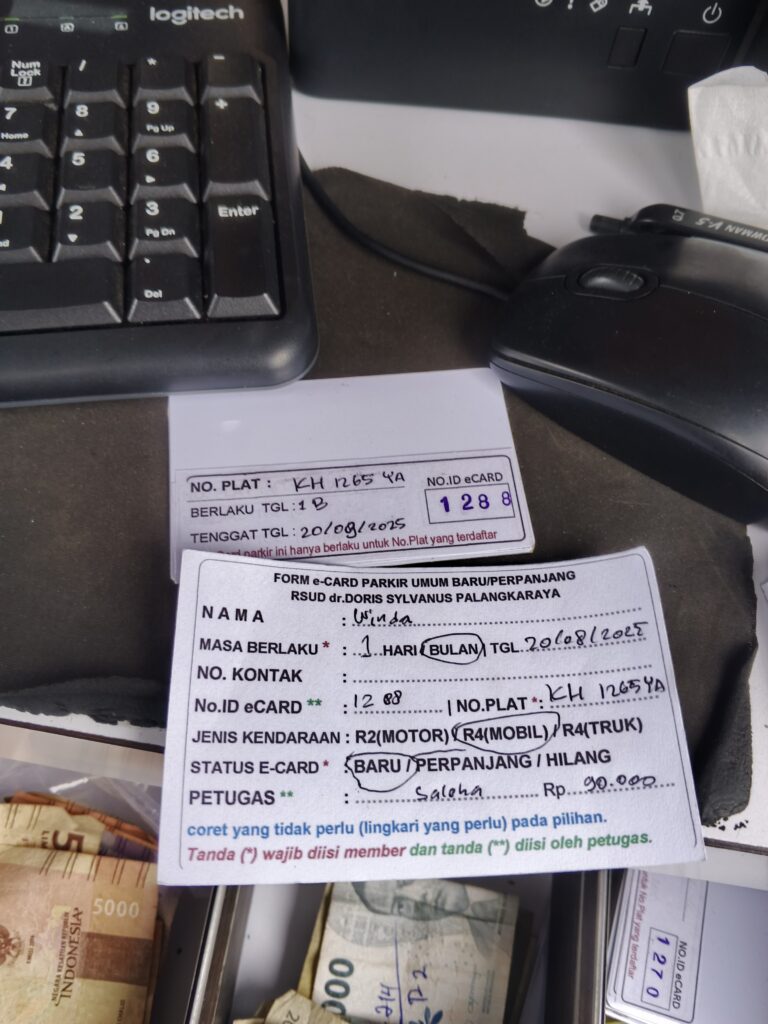 logitech
Num Lock
/
*
-
7 Home
8
9 Pg Up
+
4
5
6
2
3 Pg Dn
Enter
Del
BOWMAN V-5
NO. PLAT : KH 1265 YA
NO.ID eCARD
1288
BERLAKU TGL : 1 B
TENGGAT TGL : 20/09/2025
parkir ini hanya berlaku untuk No.Plat yang terdaftar
FORM e-CARD PARKIR UMUM BARU/PERPANJANG
RSUD dr.DORIS SYLVANUS PALANGKARAYA
NAMA : Winda
MASA BERLAKU * : 1 HARI / BULAN / TGL. 20/08/2025
NO. KONTAK :
No.ID eCARD ** : 1288 | NO.PLAT *: KH 1265 YA
JENIS KENDARAAN : R2(MOTOR) / R4(MOBIL) / R4(TRUK)
STATUS E-CARD * : BARU / PERPANJANG / HILANG
PETUGAS ** : Saleha Rp. 90.000
coret yang tidak perlu (lingkari yang perlu) pada pilihan.
Tanda (*) wajib diisi member dan tanda (**) diisi oleh petugas.
5000
INDONESIA
000
untuk No.Plat yang terdaftar
NO.ID eCARD
1270